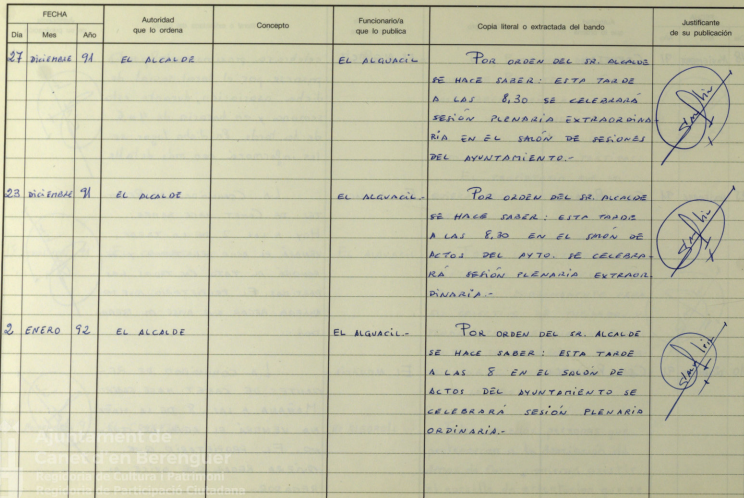 FECHA
Autoridad
que lo ordena
Concepto
Funcionario/a
que lo publica
Copia literal o extractada del bando
Justificante
de su publicación
Día Mes Año
27 DICIEMBRE 91 EL ALCALDE EL ALGUACIL POR ORDEN DEL SR. ALCALDE
SE HACE SABER: ESTA TARDE
A LAS 8,30 SE CELEBRARÁ
SESIÓN PLENARIA EXTRAORDINA-
RIA EN EL SALÓN DE SESIONES
DEL AYUNTAMIENTO.-
23 DICIEMBRE 91 EL ALCALDE EL ALGUACIL.- POR ORDEN DEL SR. ALCALDE
SE HACE SABER: ESTA TARDE
A LAS 8,30 EN EL SALÓN DE
ACTOS DEL AYTO. SE CELEBRA-
RÁ SESIÓN PLENARIA EXTRAOR-
DINARIA.-
2 ENERO 92 EL ALCALDE EL ALGUACIL.- POR ORDEN DEL SR. ALCALDE
SE HACE SABER: ESTA TARDE
A LAS 8 EN EL SALÓN DE
ACTOS DEL AYUNTAMIENTO SE
CELEBRARÁ SESIÓN PLENARIA
ORDINARIA.-
Ajuntament de
Canet d'en Berenguer
Regidoria de Cultura i Patrimoni
Regidoria de Participació Ciutadana